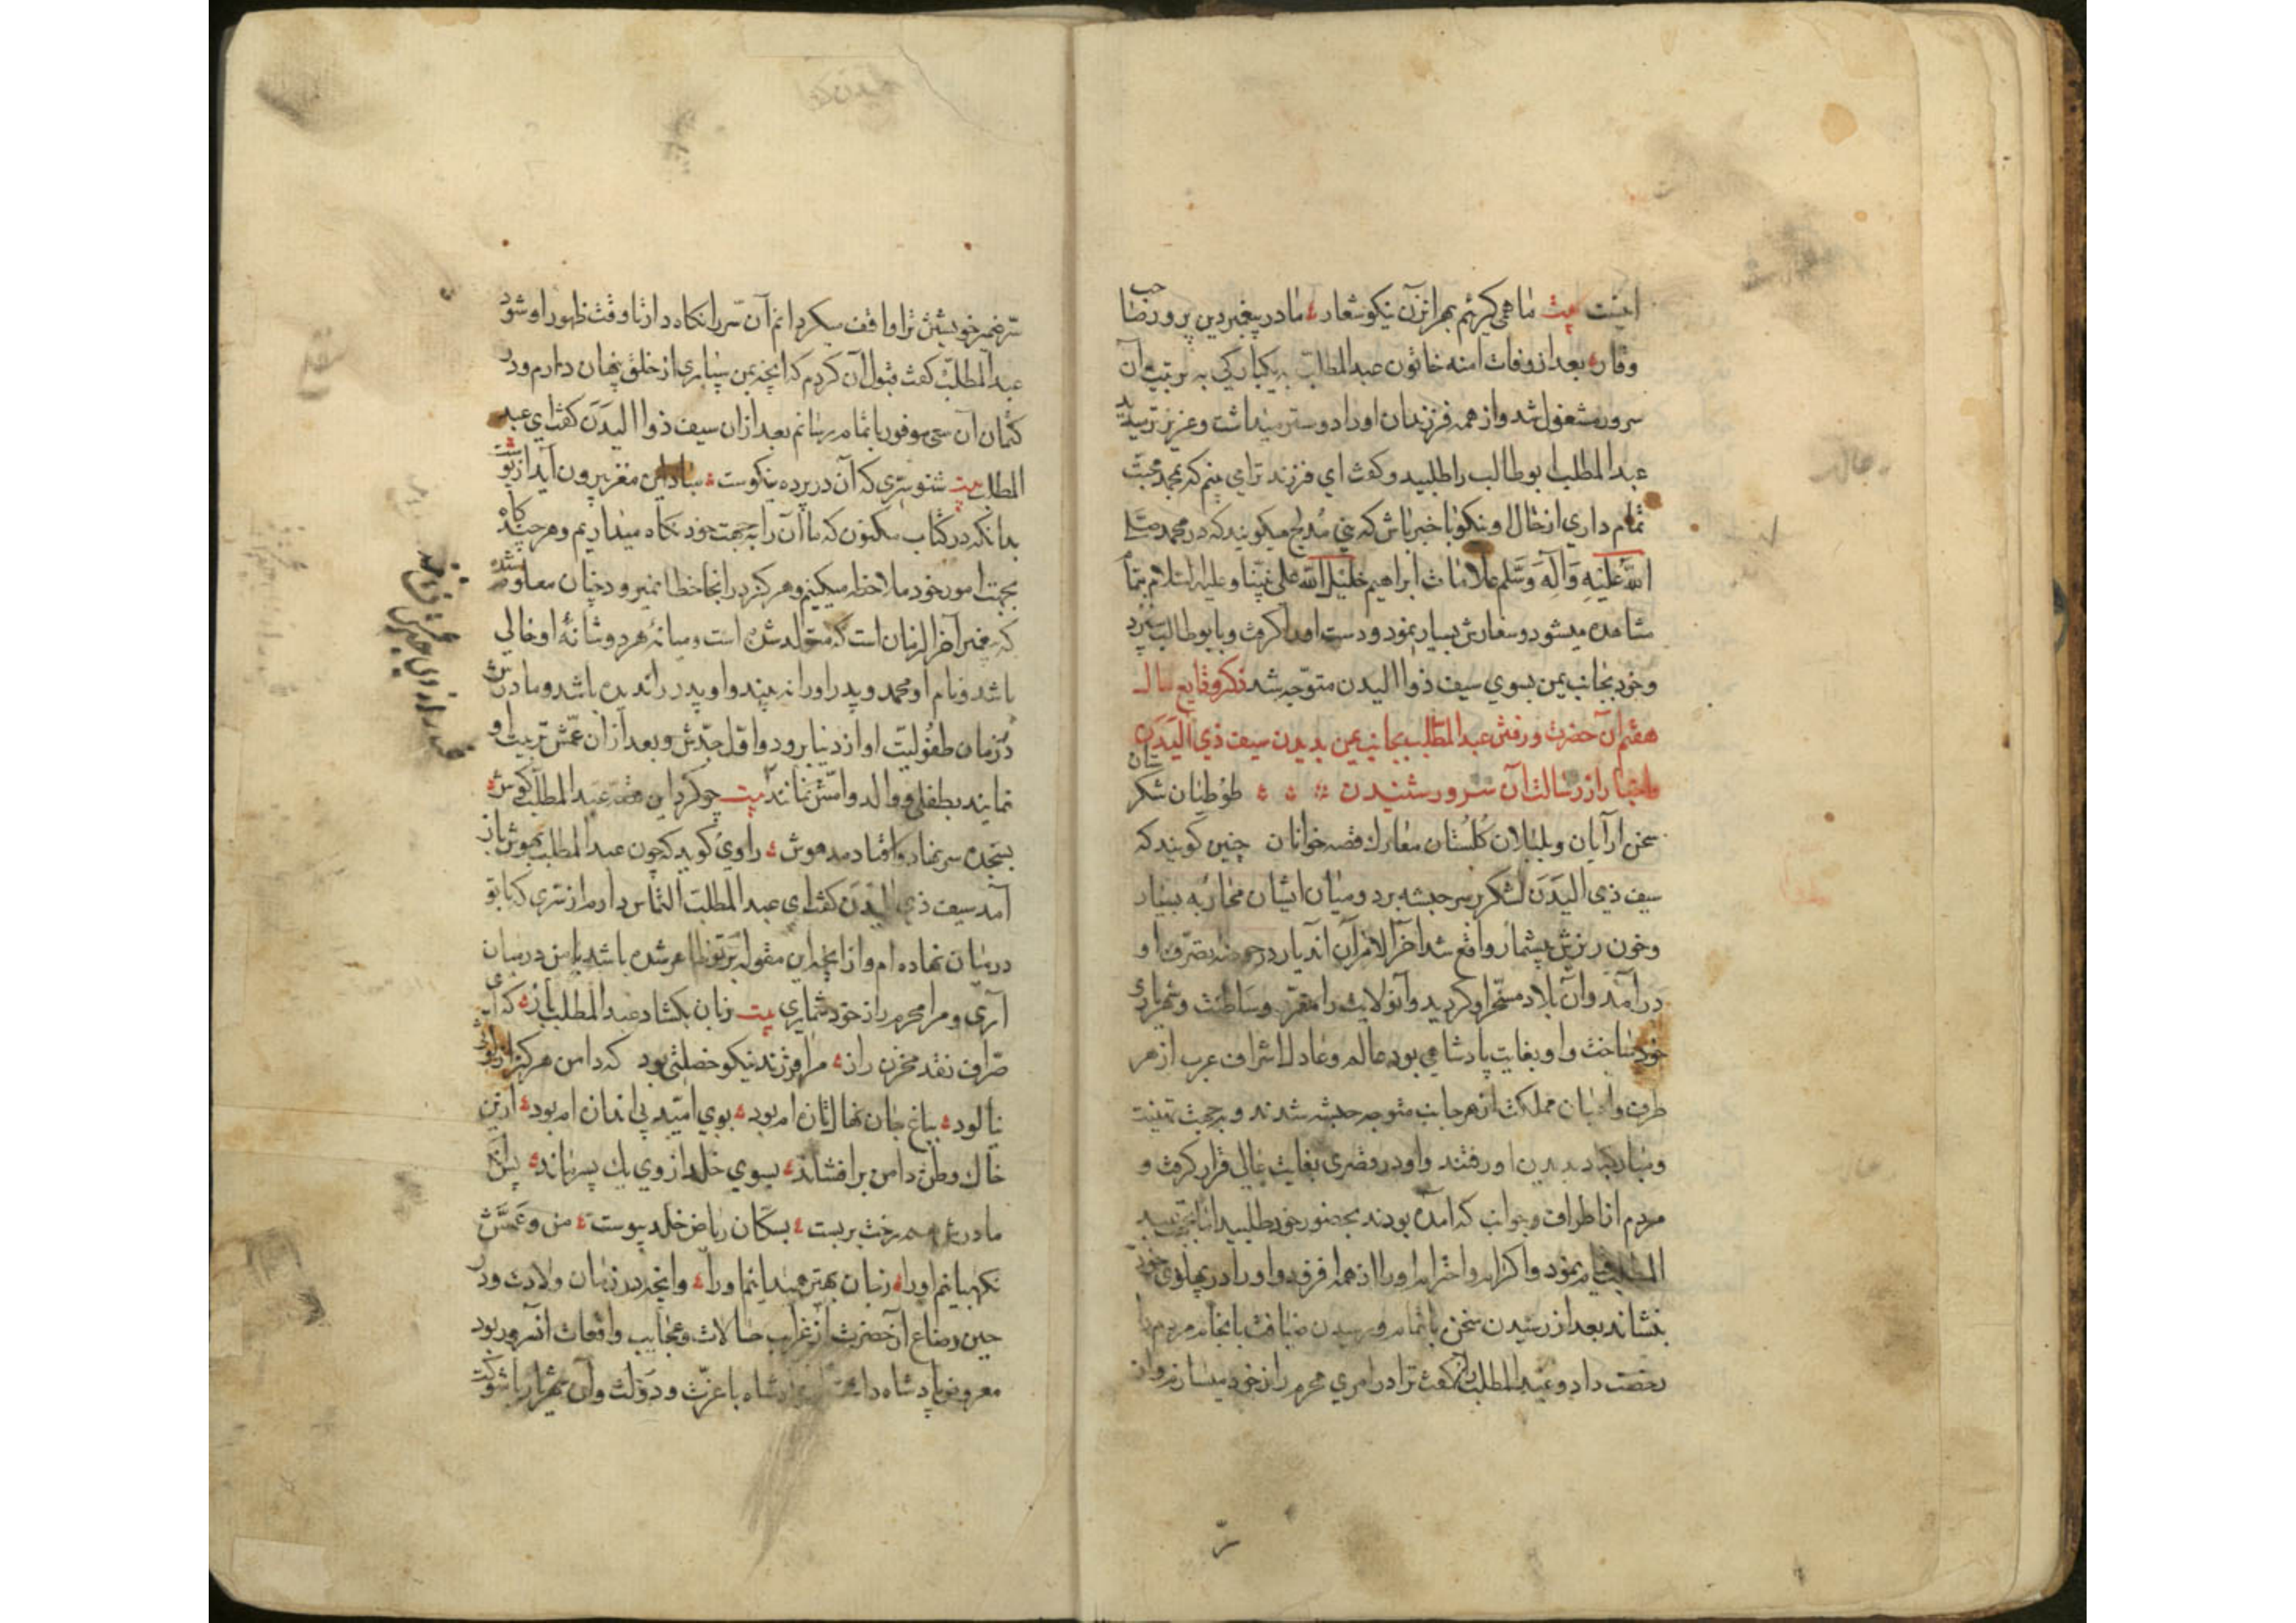 اینست بیت ما می گریم بهر این زن نیکو شعار ما در پیغمبر دین پرور صاحب
وقار بعد از وفات امنه خاتون عبدالمطلب بیکبارکی به تربیت آن
سرور مشغول شد و از همه فرزندان او را دوستر میداشت و عزیزتر میدید
عبدالمطلب ابوطالب را طلبید و گفت ای فرزند ترا می بینم که بمحمد محبت
تمام داری از حال او نیکو با خبر باش که بنی مدلج میکویند که در محمد صلی
الله علیه وآله وسلم علامات ابراهیم خلیل الله علی نبینا وعلیه السلام بتمام
مشاهده میشود و سفارش بسیار نمود و دست او را گرفت و بابوطالب سپرد
و خود بجانب یمن بسوی سیف ذوا الیدن متوجه شد ذکر وقایع سال
هفتم آن حضرت و رفتن عبدالمطلب بجانب یمن بدیدن سیف ذی الیدن
و اخبار از رسالت آن سرور شنیدن طوطیان شکرستان
سخن آرایان و بلبلان گلستان معارك قصه خوانان چنین گویند که
سیف ذی الیدن لشکر بر سر حبشه برد و میان ایشان محاربه بسیار
و خون ریزش بیشمار واقع شد آخر الامر آن اندیار در حوضه تصرف او
درآمد و آن بلاد مسخر او کردید و آنولایت را مقر سلطنت و شهریاری
خود ساخت و او بغایت پادشاهی بود عالم و عادل اشراف عرب از هر
طرف و اعیان مملکت از هر جانب متوجه حبشه شدند و بجهت تهنیت
و مبارکباد بدیدن او رفتند و او در قصری بغایت عالی قرار گرفت و
مردم از اطراف و جوانب که آمده بودند بحضور خود طلبید اما بجهت عبد
المطلب قیام نمود و اکرام و احترام او را از همه افزود و او را در پهلوی خود
بنشاند بعد از رسیدن سخن باتمام و رسیدن ضیافت بانجام مردم را
رخصت داد و عبدالمطلب را گفت ترا در امری محرم راز خود میسازم و از
سر
سر ضمیر خویشتن ترا واقف میکردانم آن سر را نکاه دار تا وقت ظهور او شود
عبدالمطلب گفت قبول آن کردم که آنچه بمن سپاری از خلق پنهان دارم و در
کتمان آن سعی موفور باتمام رسانم بعد از ان سیف ذوا الیدن گفت ای عبد
المطلب بیت شنو سری که آن در پرده نیکوست مبادا این مغز بیرون آید از پوست
بدانکه در کتاب مکنون که ما آن را بجهت خود نکاه میداریم و هر چند گاه
بجهت امور خود ملاحظه میکنیم و هرکز در انجا خطا نمیرود چنان معلوم شد
که پیغمبر آخر الزمان است که متولد شده است و میانۀ هر دو شانۀ او خالی
باشد و نام او محمد و پدر او را نبیند و او پدر را ندیده باشد و مادرش
در زمان طفولیت او از دنیا برود و اول جدش و بعد از ان عمش تربیت او
نمایند بطفلی و والد و امش نمانند بیت چو کرد این قصه عبدالمطلب گوش
بسجده سر نهاد و افتاد مدهوش راوی گوید که چون عبدالمطلب بهوش باز
آمد سیف ذی الیدن گفت ای عبدالمطلب التماس دارم از سری که با تو
درمیان نهاده ام و از آنچه این مقوله بر تو ظاهر شده باشد با من درمیان
آری و مرا محرم راز خود شماری بیت زبان بکشاد عبدالمطلب باز که ای
صراف نقد مخزن راز مرا فرزند نیکو خصلتی بود که دامن هرکز از
نیالود بباغ جان نهال تازه ام بود بوی امید بی اندازه ام بود ازین
خاك وطن دامن برافشاند بسوی خلد از وی یك پسر ماند پس انکه
مادرش هم رخت بربست بسکان ریاض خلد پیوست من و عمش
نکهبانیم او را زجان بهتر همیدانیم او را و آنچه در زمان ولادت و در
حین رضاع آنحضرت از غرایب حالات و عجایب واقعات آنسرور بود
معروض پادشاه داشت آن پادشاه باعزت و دولت و آن شهریار باشوکت